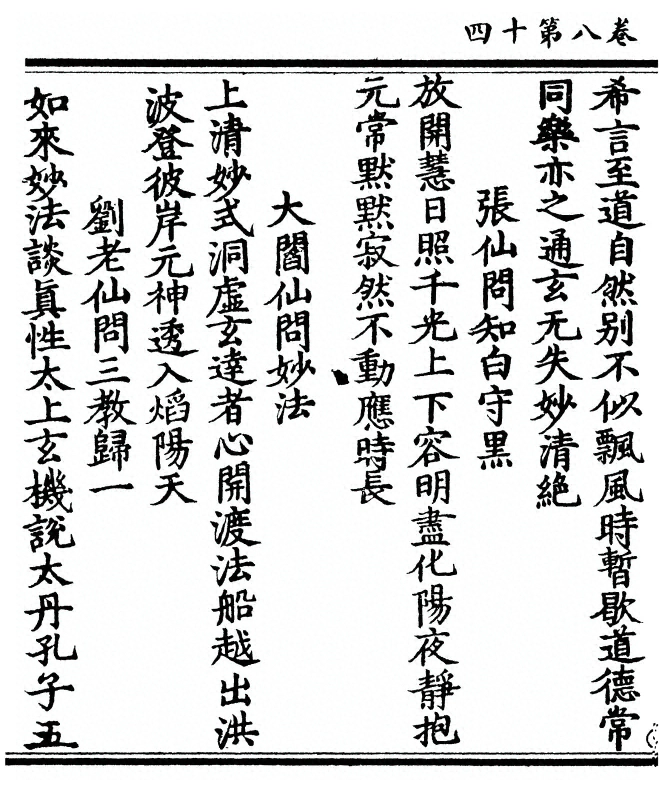 卷八第十四
希言至道自然别不似飄風時暫歇道德常
同樂亦之通玄无失妙清絶
張仙問知白守黑
放開慧日照千光上下容明盡化陽夜靜抱
元常默默寂然不動應時長
大閻仙問妙法
上清妙式洞虛玄達者心開渡法船越出洪
波登彼岸元神透入焰陽天
劉老仙問三教歸一
如來妙法談真性太上玄機説太丹孔子五